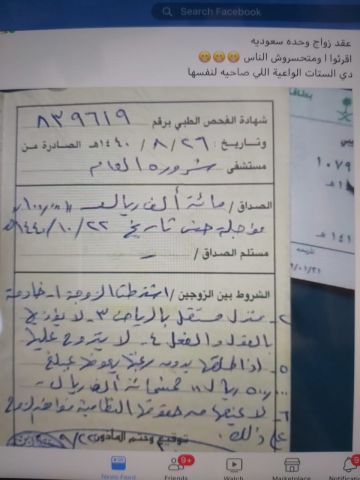 Search Facebook
عقد زواج وحده سعوديه
اقرئوا ا ومتحسروش الناس 😄😄😄
دي الستات الواعية اللي صاحيه لنفسها
شهادة الفحص الطبي برقم ٨٣٩٦١٩
وتاريخ : ٢٦ / ٨ / ١٤٤٠هـ الصادرة من
مستشفى شروره العام
الصداق / مائة ألف ريال
مؤجلة حتى تاريخ ٢٢ / ١٠ / ١٤٤٠هـ
مستلم الصداق /
الشروط بين الزوجين / اشترطت الزوجة ١- خادمة
٢- منزل مستقل بالرياض ٣- لا يؤذيها
بالقول والفعل ٤- لا يتزوج عليها
٥- اذا طلقها بدون رغبتها يعوضها بمبلغ
خمسمائة ألف ريال
٦- لا يمنعها من حقوقها النظامية
على ذلك
توقيع وختم المأذون
١٠٧٩
News Feed
Friends
9+
Watch
Marketplace
9
Notificat